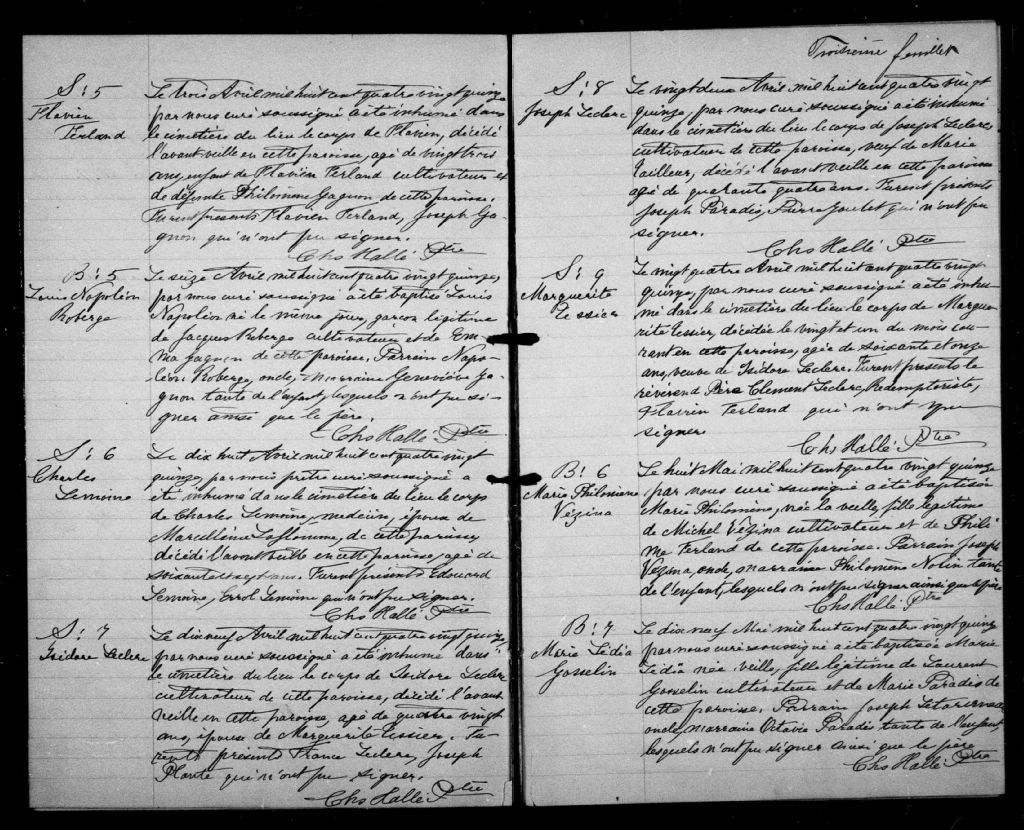 S: 5
Flavien
Ferland
Le trois Avril mil huit cent quatre vingt quinze
par nous curé soussigné a été inhumé dans
le cimetière du lieu le corps de Flavien, décédé
l'avant veille en cette paroisse, agé de vingt trois
ans, enfant de Flavien Ferland cultivateur et
de défunte Philomène Gagnon de cette paroisse.
Furent présents Flavien Ferland, Joseph Ga-
gnon qui n'ont pu signer.
Chs Hallé Ptre
B: 5
Louis Napoléon
Roberge
Le seize Avril mil huit cent quatre vingt quinze,
par nous curé soussigné a été baptisé Louis
Napoléon né le même jour, garçon légitime
de Jacques Roberge cultivateur et de Em-
ma Gagnon de cette paroisse. Parrain Napo-
léon Roberge, oncle, marraine Geneviève Ga-
gnon tante de l'enfant, lesquels n'ont pu si-
gner ainsi que le père.
Chs Hallé Ptre
S: 6
Charles
Lemoine
Le dix huit Avril mil huit cent quatre vingt
quinze, par nous prêtre soussigné a
été inhumé dans le cimetière du lieu le corps
de Charles Lemoine, médecin, époux de
Marcelline Laflamme, de cette paroisse,
décédé l'avant veille en cette paroisse, agé de
soixante et sept ans. Furent présents Edouard
Lemoine, Errol Lemoine qui n'ont pu signer.
Chs Hallé Ptre
S: 7
Isidore Leclerc
Le dix neuf Avril mil huit cent quatre vingt quinze,
par nous curé soussigné a été inhumé dans
le cimetière du lieu le corps de Isidore Leclerc
cultivateur de cette paroisse, décédé l'avant
veille en cette paroisse, agé de quatre vingt
ans, époux de Marguerite Tessier. Fu-
rent présents France Leclerc, Joseph
Plante qui n'ont pu signer.
Chs Hallé Ptre
Troisième feuillet
S: 8
Joseph Leclerc
Le vingt deux Avril mil huit cent quatre vingt
quinze, par nous curé soussigné a été inhumé
dans le cimetière du lieu le corps de Joseph Leclerc,
cultivateur de cette paroisse, veuf de Marie
Tailleur, décédé l'avant veille en cette paroisse
agé de quarante quatre ans. Furent présents
Joseph Paradis, Pierre Goulet qui n'ont pu
signer.
Chs Hallé Ptre
S: 9
Marguerite
Tessier
Le vingt quatre Avril mil huit cent quatre vingt
quinze, par nous curé soussigné a été inhu-
mé dans le cimetière du lieu le corps de Margue-
rite Tessier, décédée le vingt et un du mois cou-
rant en cette paroisse, agée de soixante et onze
ans, veuve de Isidore Leclerc. Furent présents le
révérend Père Clement Leclerc, Redemptoriste,
Flavien Ferland qui n'ont pu
signer
Chs Hallé Ptre
B: 6
Marie Philomène
Vézina
Le huit Mai mil huit cent quatre vingt quinze
par nous curé soussigné a été baptisée
Marie Philomène, née la veille, fille légitime
de Michel Vézina cultivateur et de Phili-
me Ferland de cette paroisse. Parrain Joseph
Vézina, oncle, marraine Philomène Nolin tante
de l'enfant, lesquels n'ont pu signer ainsi que le père
Chs Hallé Ptre
B: 7
Marie Lédia
Gosselin
Le dix neuf Mai mil huit cent quatre vingt quinze
par nous curé soussigné a été baptisée Marie
Lédia née veille, fille légitime de Laurent
Gosselin cultivateur et de Marie Paradis de
cette paroisse. Parrain Joseph
oncle, marraine Octavie Paradis tante de l'enfant,
lesquels n'ont pu signer ainsi que le père
Chs Hallé Ptre